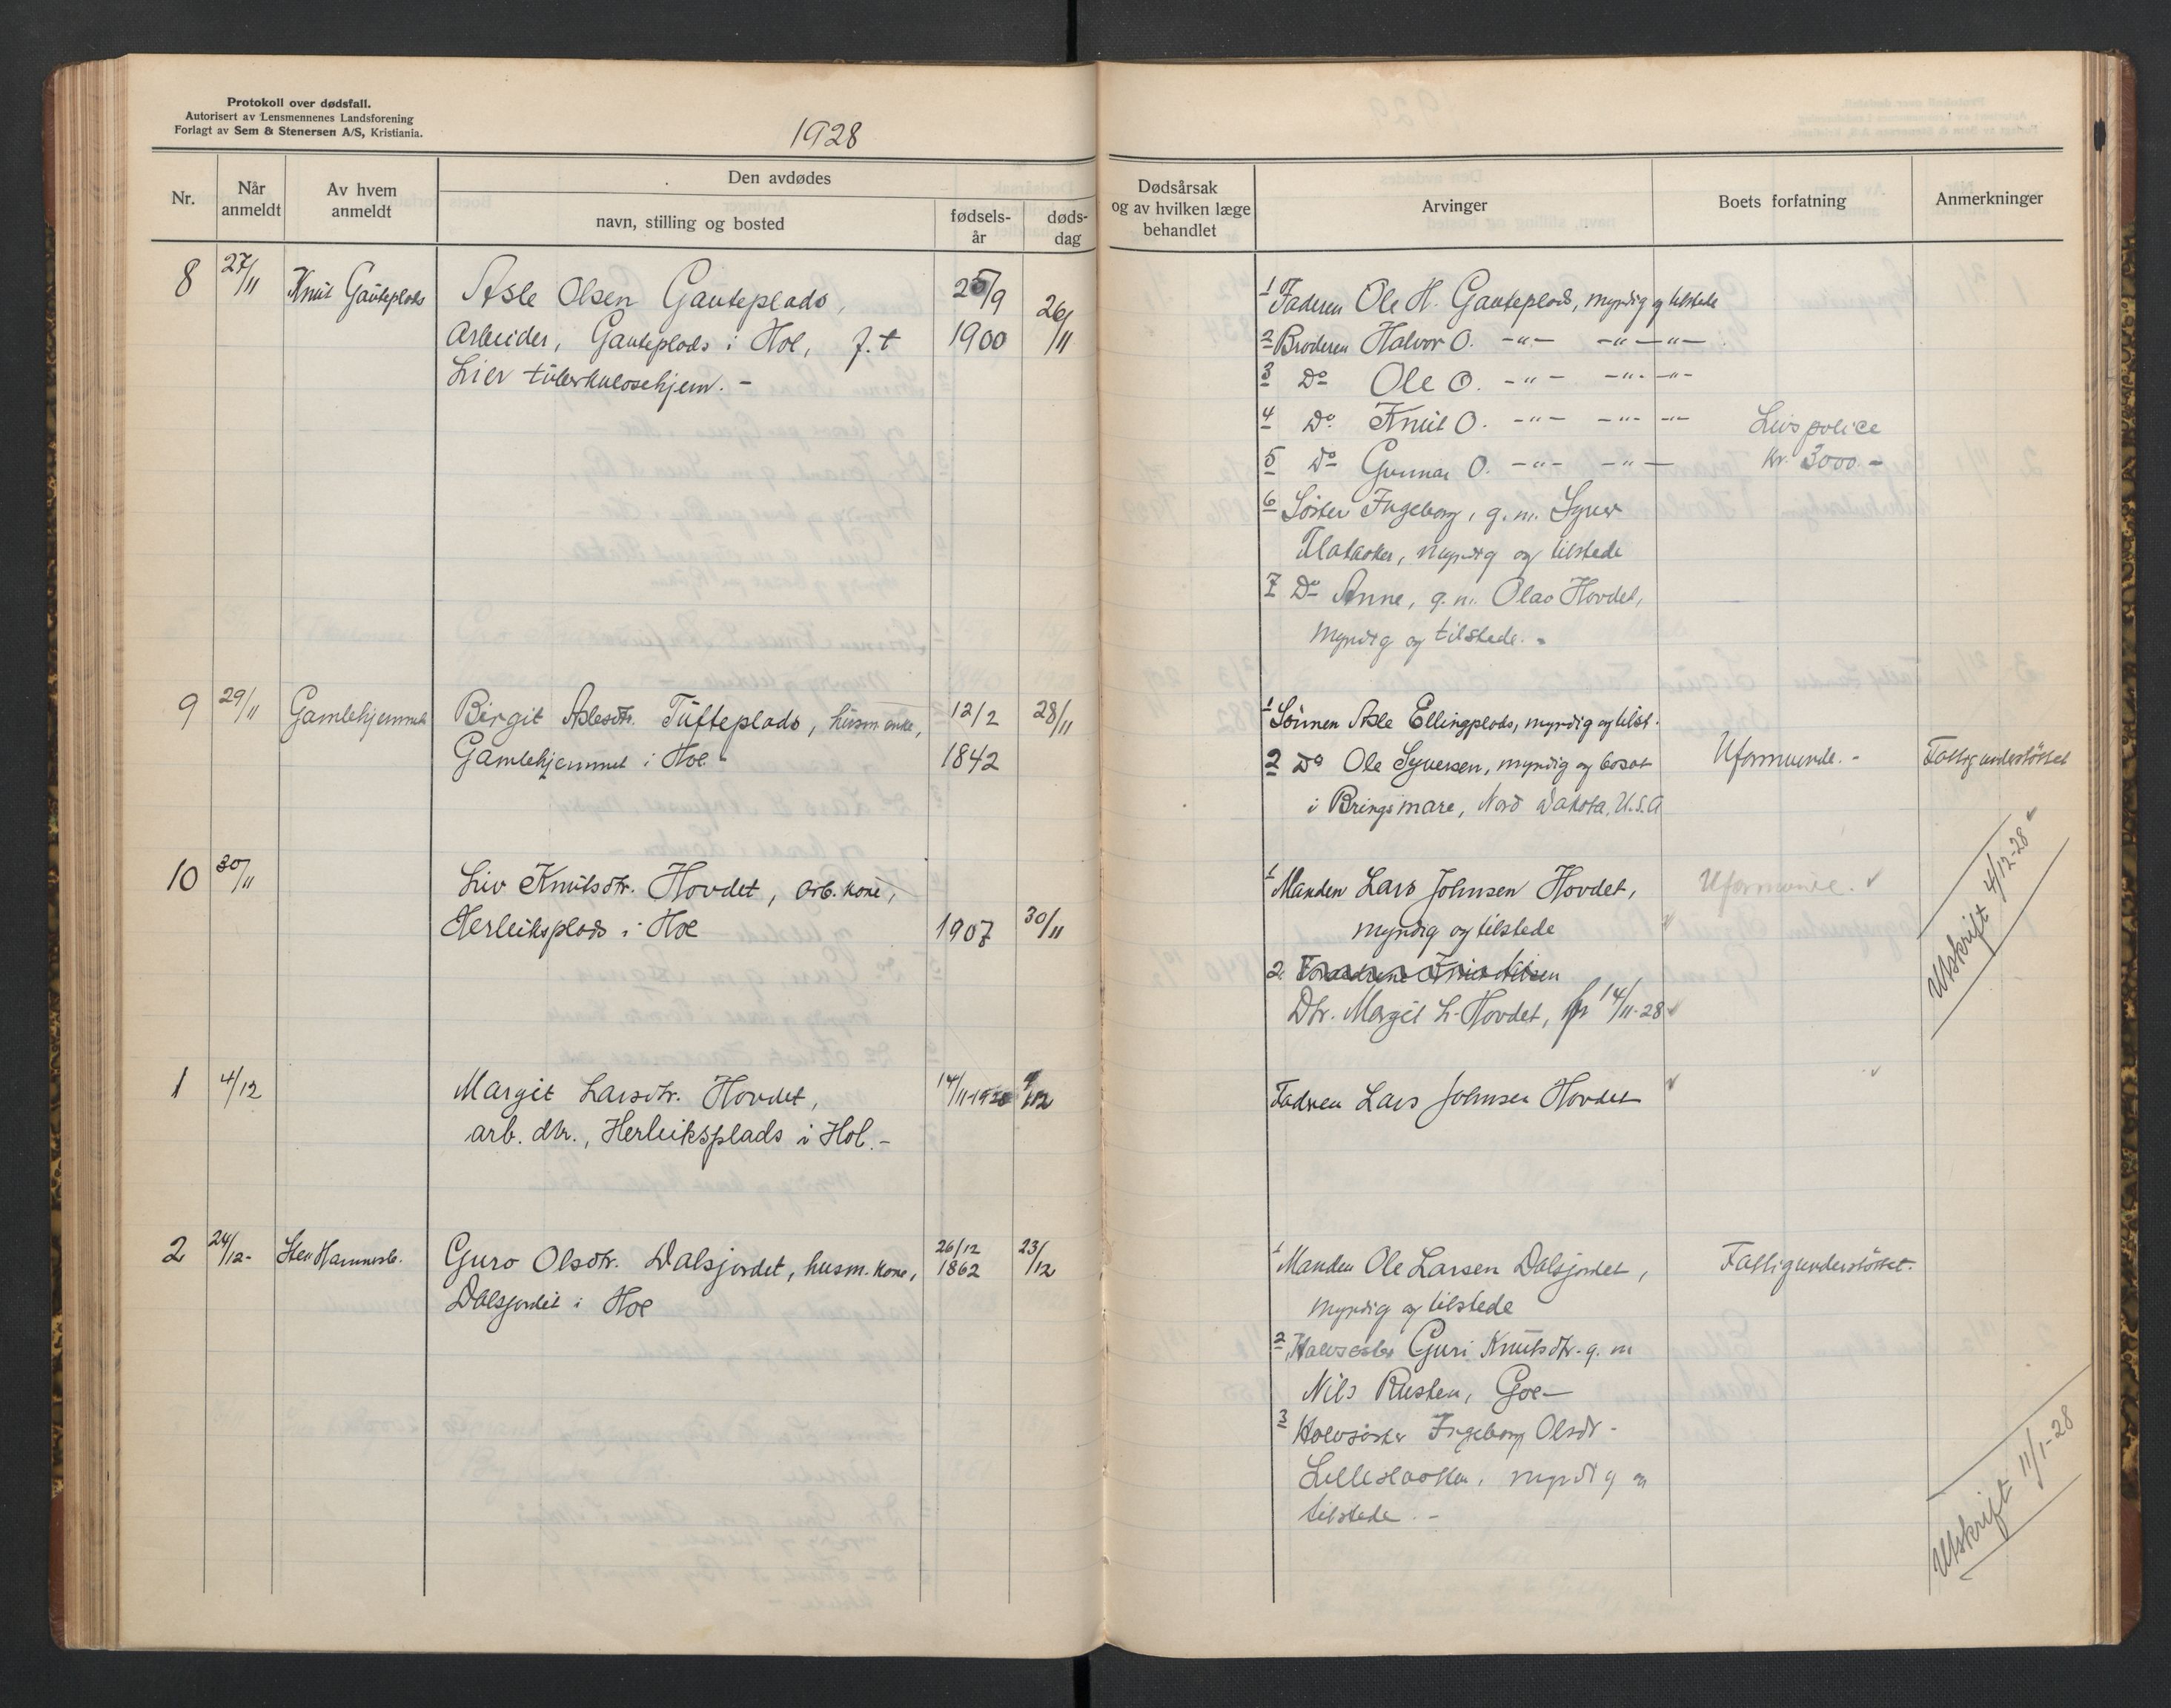 Protokoll over dødsfall.
Autorisert av Lensmennenes Landsforening
Forlagt av Sem & Stenersen A/S, Kristiania.
1928
Nr.
Når anmeldt
Av hvem anmeldt
Den avdødes
navn, stilling og bosted
fødsels-
år
døds-
dag
Dødsårsak
og av hvilken læge
behandlet
Arvinger
Boets forfatning
Anmerkninger
8 27/11 Knut Gauteplads Asle Olsen Gauteplads, 25/9 26/11
Arbeider, Gauteplads i Hol, f.t 1900
Lier tuberkulosehjem. -
1 Faderen Ole H. Gauteplads, myndig og tilstede
2 Broderen Halvor O. -"- -"- -"-
3 Do Ole O. -"- -"- -"-
4 Do Knut O. -"- -"- -"-
5 Do Gunnar O. -"- -"-
Livspolice
kr. 3000.-
6 Søster Ingeborg, g.m. Syver
myndig og tilstede
7 Do Anne, g.m. Olav Hovdet,
myndig og tilstede. -
9 29/11 Gamlehjemmet Birgit Aslesdtr. Tufteplads, husm. enke, 12/2 28/11
Gamlehjemmet i Hol 1842
1 Sønnen Asle Ellingplads, myndig og tilst.
2 Do Ole Syversen, myndig og bosat
i Bringsmare, Nord Dakota, U.S.A
Uformuende. -
Fattigunderstöttet
10 30/11 Liv Knutsdtr. Hovdet, arb. kone,
Herleiksplads i Hol 1907 30/11
1 Manden Lars Johnsen Hovdet,
myndig og tilstede
2.
Dtr. Margit L. Hovdet, 14/11-28
Uformuende.
Utskrift 4/12-28
1 4/12 Margit Larsdtr. Hovdet, 14/11-1928 4/12
arb. dtr., Herleiksplads i Hol. -
Fadren Lars Johnsen Hovdet
2 24/12- Sten Hammersb. Guro Olsdtr. Dalsjordet, husm. kone, 26/12 1862 23/12
Dalsjordet i Hol
1 Manden Ole Larsen Dalsjordet,
myndig og tilstede
2 Halvsøster Guri Knutsdtr. g. m
Nils Rusten, Gol -
3 Halvsøster Ingeborg Olsdtr -
myndig og
tilstede. -
Fattigunderstöttet.
Utskrift 11/1-28